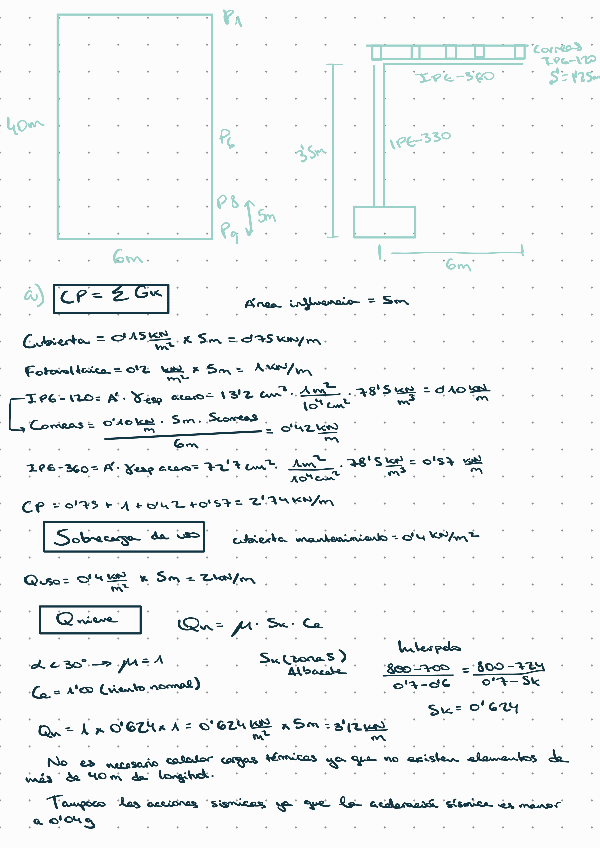 P1
40m
P6
P8
5m
P9
6m
Correas
IPE-120
S=1'25m
IPE-360
3'5m
IPE-330
6m
a) CP = Σ GK
Área influencia = 5m
Cubierta = 0'15 KN/m² × 5m = 0'75 KN/m
Fotovoltaica = 0'2 KN/m² × 5m = 1 KN/m
IPE-120 = A · γesp acero = 13'2 cm² · 1m²/10⁴cm² · 78'5 KN/m³ = 0'10 KN/m
Correas = 0'10 KN/m · 5m · 5correas / 6m = 0'42 KN/m
IPE-360 = A · γesp acero = 72'7 cm² · 1m²/10⁴cm² · 78'5 KN/m³ = 0'57 KN/m
CP = 0'75 + 1 + 0'42 + 0'57 = 2'74 KN/m
Sobrecarga de uso
cubierta mantenimiento = 0'4 KN/m²
Quso = 0'4 KN/m² × 5m = 2 KN/m
Q nieve
Qn = μ · Sk · Ce
α < 30° → μ = 1
Sk (zona 5)
Albacete
Interpolo
800-700/0'7-0'6 = 800-724/0'7-Sk
Ce = 1'00 (viento normal)
Sk = 0'624
Qn = 1 × 0'624 × 1 = 0'624 KN/m² × 5m = 3'12 KN/m
No es necesario calcular cargas térmicas ya que no existen elementos de
más de 40m de longitud.
Tampoco las acciones sísmicas ya que la aceleración sísmica es menor
a 0'04g